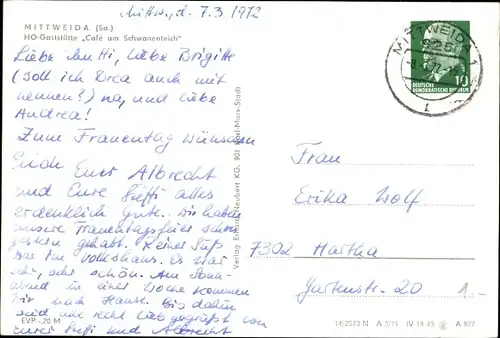 Mittw., d. 7.3.1972
MITTWEIDA (Sa.)
HO-Gaststätte „Café am Schwanenteich"
Liebe Mutti, liebe Brigitte
(soll ich Drea auch mit
nennen?) na, und liebe
Andrea!
Zum Frauentag wünschen
Euch Euer Albrecht
und Eure Steffi alles
erdenklich Gute. Wir haben
unsere Frauentagsfeier schon
gestern gehabt.
war im Volkshaus. Es war
sehr, sehr schön. Am Sonn-
abend in einer Woche kommen
wir nach Hause. Bis dahin
seid alle recht lieb gegrüßt von
Eurer Steffi und Albrecht
EVP -.20 M
Verlag Erhard Neubert KG, 901 Karl-Marx-Stadt
MITTWEIDA 1
925
10
DEUTSCHE
DEMOKRATISCHE REPUBLIK
Frau
Erika Wolf
7302 Hartha
Gartenstr. 20
1.-
14/2573 N A 977